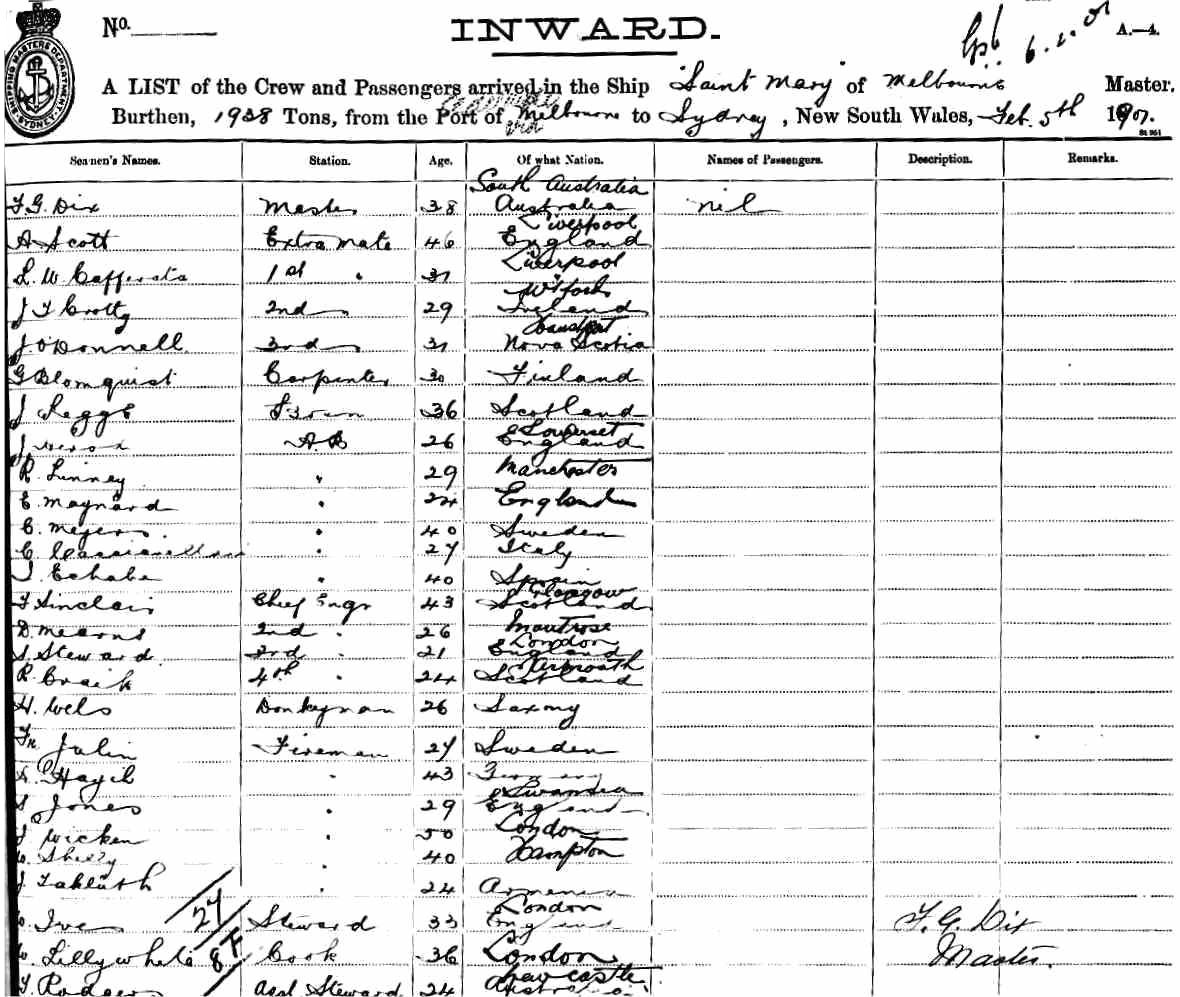 No. INWARD. A.—4.
A LIST of the Crew and Passengers arrived in the Ship "Saint Mary" of Melbourne Master,
Burthen, 1938 Tons, from the Port of Melbourne to Sydney, New South Wales, Feb. 5th 1907.
SHIPPING MASTERS DEPARTMENT SYDNEY
Seamen's Names. Station. Age. Of what Nation. Names of Passengers. Description. Remarks.
South Australia
F. G. Dix Master 38 Australia nil
Liverpool
A Scott Extra Mate 46 England
L. W. Cafferata 1st " 31 Liverpool
J F Crotty 2nd 29 Ireland
J. O'Donnell 3rd 31 Nova Scotia
G Blomquist Carpenter 30 Finland
J Leggs 36 Scotland
Somerset
J A.B 26 England
R. Linney " 29 Manchester
E. Maynard " 24 England
C. Meyers " 40 Sweden
C. " 27 Italy
J. Echabe " 40 Spain
Glasgow
F Sinclair Chief Engr 43 Scotland
D. Mearns 2nd " 26 Montrose
London
S. Steward 3rd " 21 England
R. Craik 4th " 24 Scotland
H. Wels Donkeyman 26 Saxony
Julin Fireman 27 Sweden
Hagel " 43 Germany
Swansea
S Jones " 29 England
J Wicken " 50 London
Sheezy 40 Hampton
J. " 24 Armenia
London
Ive 27 Steward 33 England F. G. Dix
Lillywhite Cook 36 London Master.
Rodger Asst Steward 24